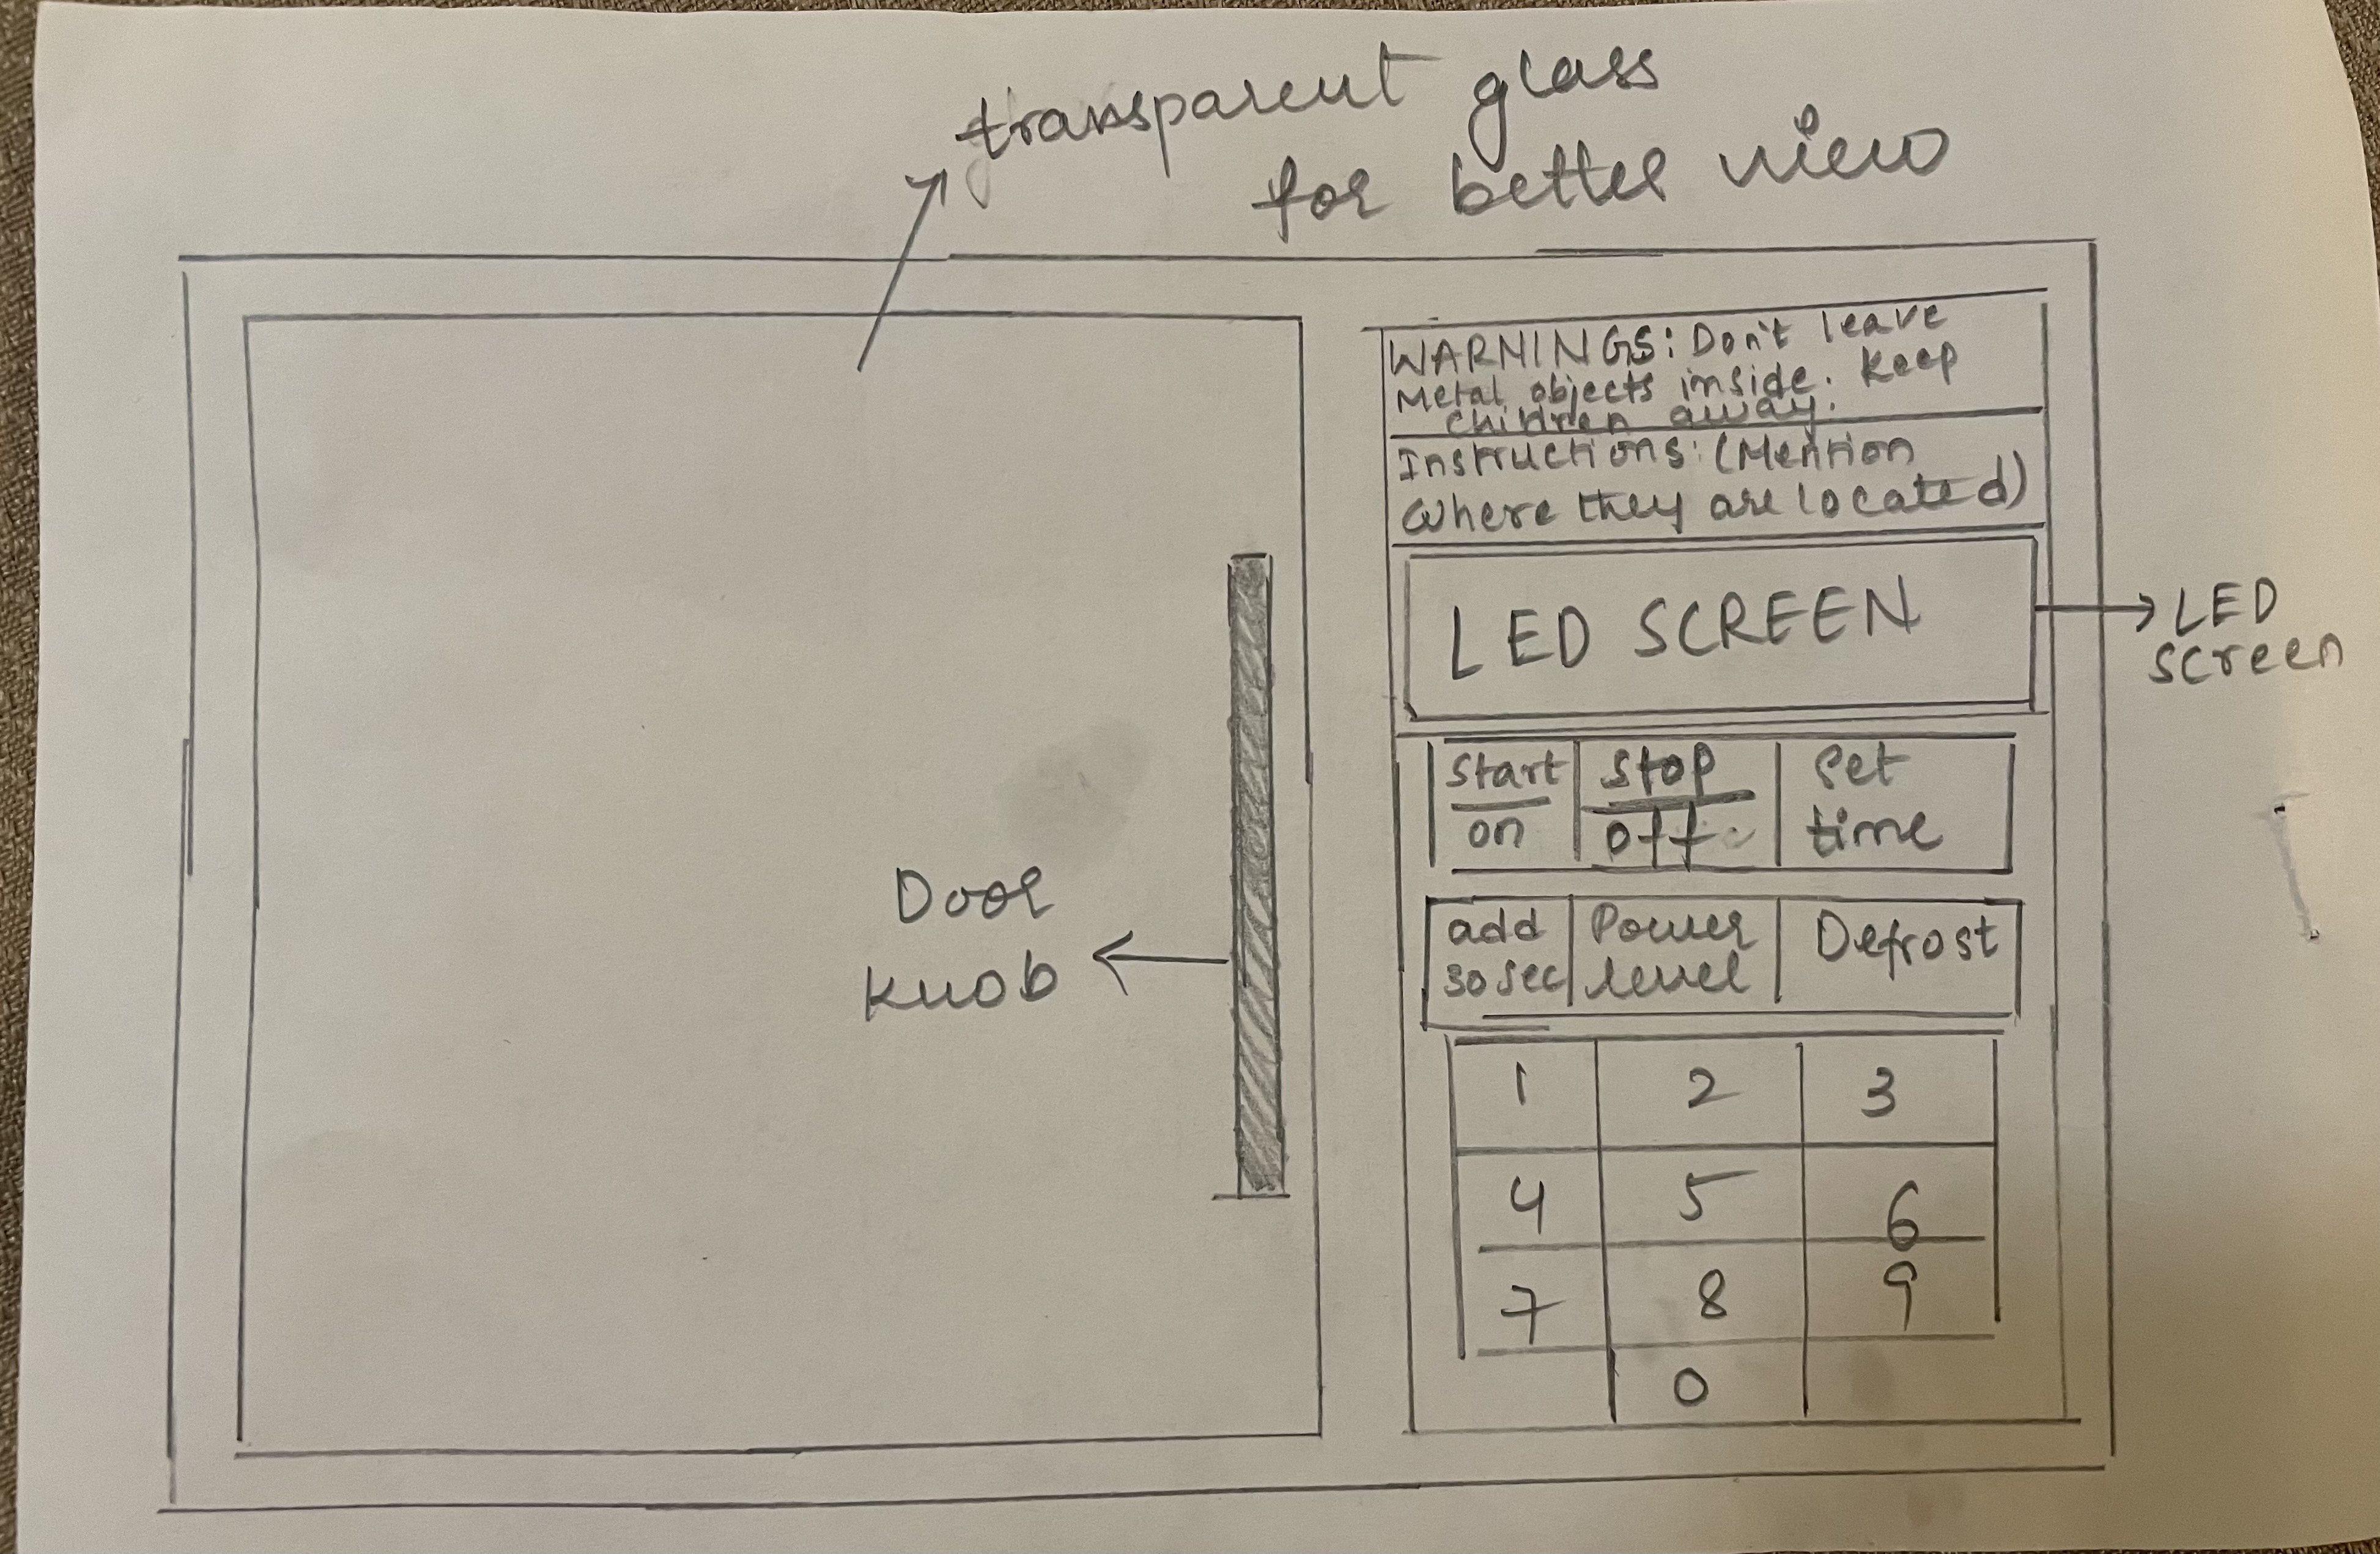 transparent glass
for better view
WARNINGS: Don't leave
Metal objects inside. Keep
children away.
Instructions: (Mention
Where they are located)
LED SCREEN
LED
screen
Start
on
Stop
off
Set
time
add
30 sec
Power
level
Defrost
Door
knob
1 2 3
4 5 6
7 8 9
0